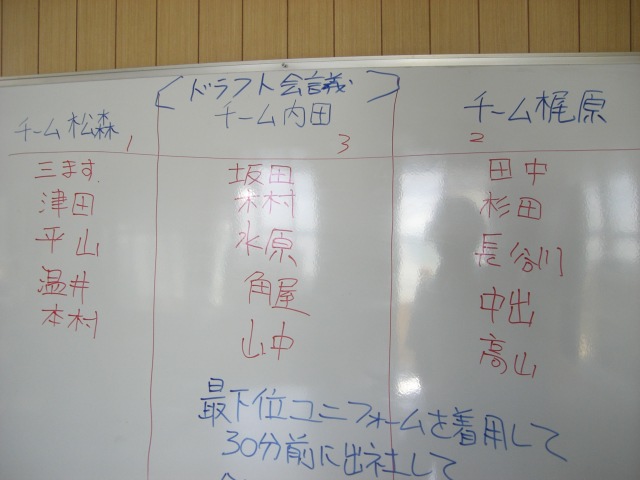 〈ドラフト会議〉
チーム松森 1
三ます
津田
平山
温井
本村
チーム内田 3
坂田
木村
水原
角屋
山中
チーム梶原 2
田中
杉田
長谷川
中出
高山
最下位ユニフォームを着用して
30分前に出社して